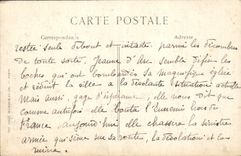 CARTE POSTALE
Correspondance Adresse
reste seule debout et intacte parmi les décombres
de toute sorte, Jeanne d'Arc semble défier les
boches qui ont bombardé sa magnifique église
et réduit la ville à la désolante situation actuelle
Mais aussi, gage d'espérance, elle nous dit que
comme autrefois elle bouta l'ennemi hors de
France, aujourd'hui elle chassera la sinistre
armée qui sème sur sa route, la désolation et la